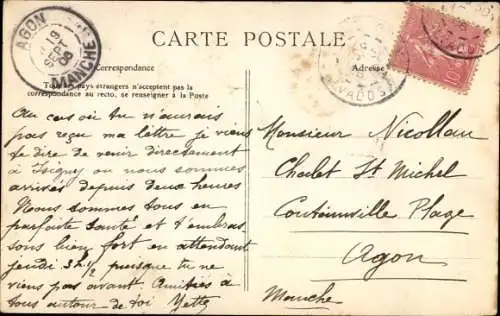 CARTE POSTALE
Correspondance
Tous les pays étrangers n'acceptent pas la
correspondance au recto, se renseigner à la Poste
Adresse
AGON
MANCHE
19
SEPT
CALVADOS
10
Au cas où tu n'aurais
pas reçu ma lettre je viens
te dire de venir directement
à Isigny où nous sommes
arrivés depuis deux heures
Nous sommes tous en
parfaite santé et t'embras
sons bien fort en attendant
jeudi 5h 1/2 puisque tu ne
viens pas avant. Amitiés à
tous autour de toi Yette
Monsieur Nicollau
Chalet St Michel
Coutainville Plage
Agon
Manche